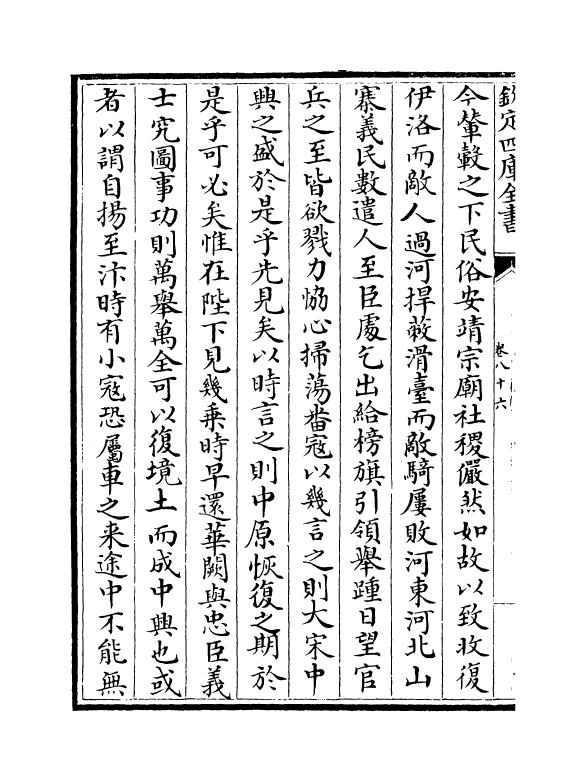 欽定四庫全書
卷八十六
今輦轂之下民俗安靖宗廟社稷儼然如故以致收復
伊洛而敵人過河捍蔽滑臺而敵騎屢敗河東河北山
寨義民數遣人至臣處乞出給榜旗引領舉踵日望官
兵之至皆欲戮力恊心掃蕩畨寇以幾言之則大宋中
興之盛於是乎先見矣以時言之則中原恢復之期於
是乎可必矣惟在陛下見幾乗時早還華闕與忠臣義
士究圖事功則萬舉萬全可以復境土而成中興也或
者以謂自揚至汴時有小寇恐屬車之来途中不能無